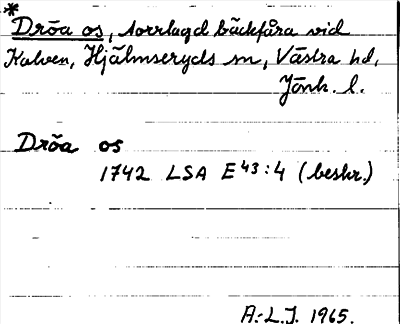 * Dröa os, torrlagd bäckfåra vid
Kalven, Hjälmseryds sn, Västra hd,
Jönk. l.
Dröa os
1742 LSA E43:4 (beskr.)
A.-L.J. 1965.